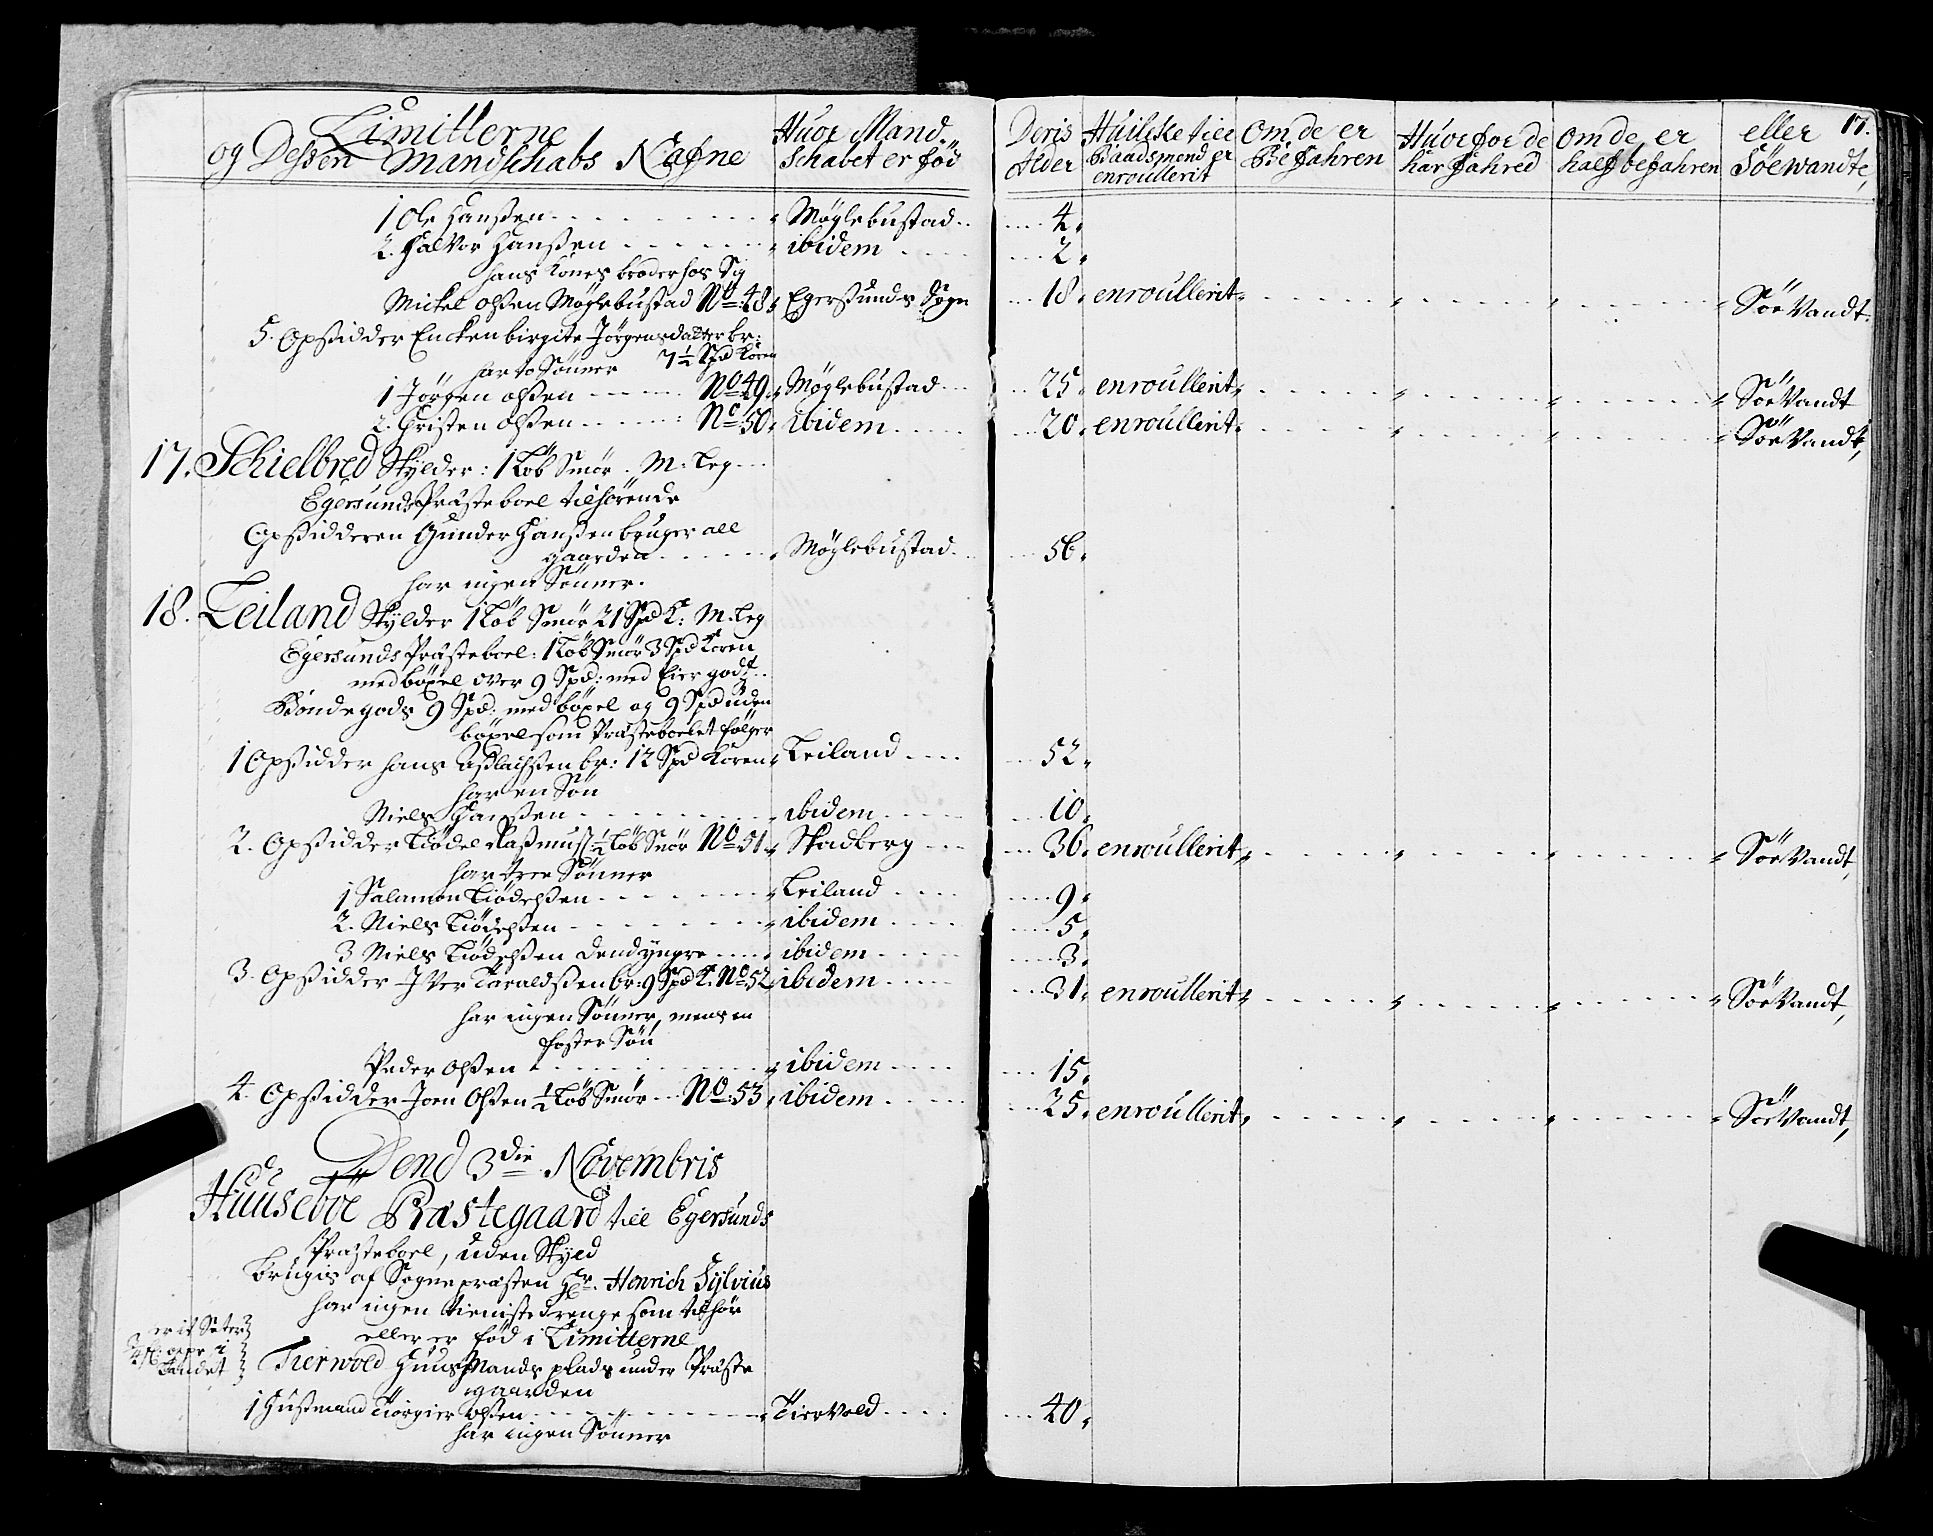 Limitterne og Dessen Mandschabs Nafne | Huor Mand Schabet er fød | Deris Alder | Huilcke till Baadsmend er enroullerit | Om de er Befahren | Huorfor de har fahred | Om de er half befahren | eller Söewandte, 17.
1 Ole Hanßen | Møglebustad | 4
2. Halvor Hanßen | ibidem | 2
hans Kones broder hos Sig
Mickel Olßen Møglebustad No: 48 | Egersunds Sogn | 18 | enroullerit | Söe Vandt.
5. Opsidder Encken birgite Jørgensdatter br: 7½ Spd Koren
har to Sønner
1 Jörgen Olßen No 49 | Møglebustad | 25 | enroullerit | Söe Vandt
2. Christen Olßen No: 50 | ibidem | 20 | enroullerit | Söe Vandt,
17. Schielbred Skylder: 1 Löb Smör. M: Leg
Egersunds Præsteboel tilhørende
Opsidderen Gunder Hanßen bruger all
gaarden | Møglebustad | 56
har ingen Sönner.
18. Leiland Skylder 1 Löb Smör 21 Spd K: M. Leg
Egersunds Præsteboel: 1 Löb Smör 3 Spd Koren
med böxel over 9 Spd: med Eier godtz
Bönde gods 9 Spd: med böxel og 9 Spd uden
böxel som Præsteboelet følger
1 Opsidder Hans Aslachßen br: 12 Spd Koren | Leiland | 52
har en Sön
Niels Hanßen | ibidem | 10
2. Opsidder Tiödel Raßmuß ½ Löb Smör No 51 | Skadberg | 36 | enroullerit | Söe Vandt,
har tree Sönner
1 Salamon Tiödelßen | Leiland | 9
2. Niels Tiödelßen | ibidem | 5
3 Niels Tiödelßen dend yngre | ibidem | 3
3. Opsidder Iver Taraldßen br: 9 Spd K. No 52 | ibidem | 31 | enroullerit | Söe Vandt,
har ingen Sönner, mens en
foster Sön
Peder Olßen | ibidem | 15
4. Opsidder Joen Olßen ½ Löb Smör No: 53 | ibidem | 25 | enroullerit | Söe Vandt,
Dend 3die Novembris
Huuseböe Præstegaard till Egersunds
Præsteboel, uden Skyld
Brugis af Sognepræsten Hr. Henrich Sylvius
har ingen tienistedrenge som tilhør
eller er fød i Limitterne
Tierwold Huus Mands plads under Præste
gaarden
1 Husmand Törgier Olßen | Tiervold | 40
har ingen Sönner